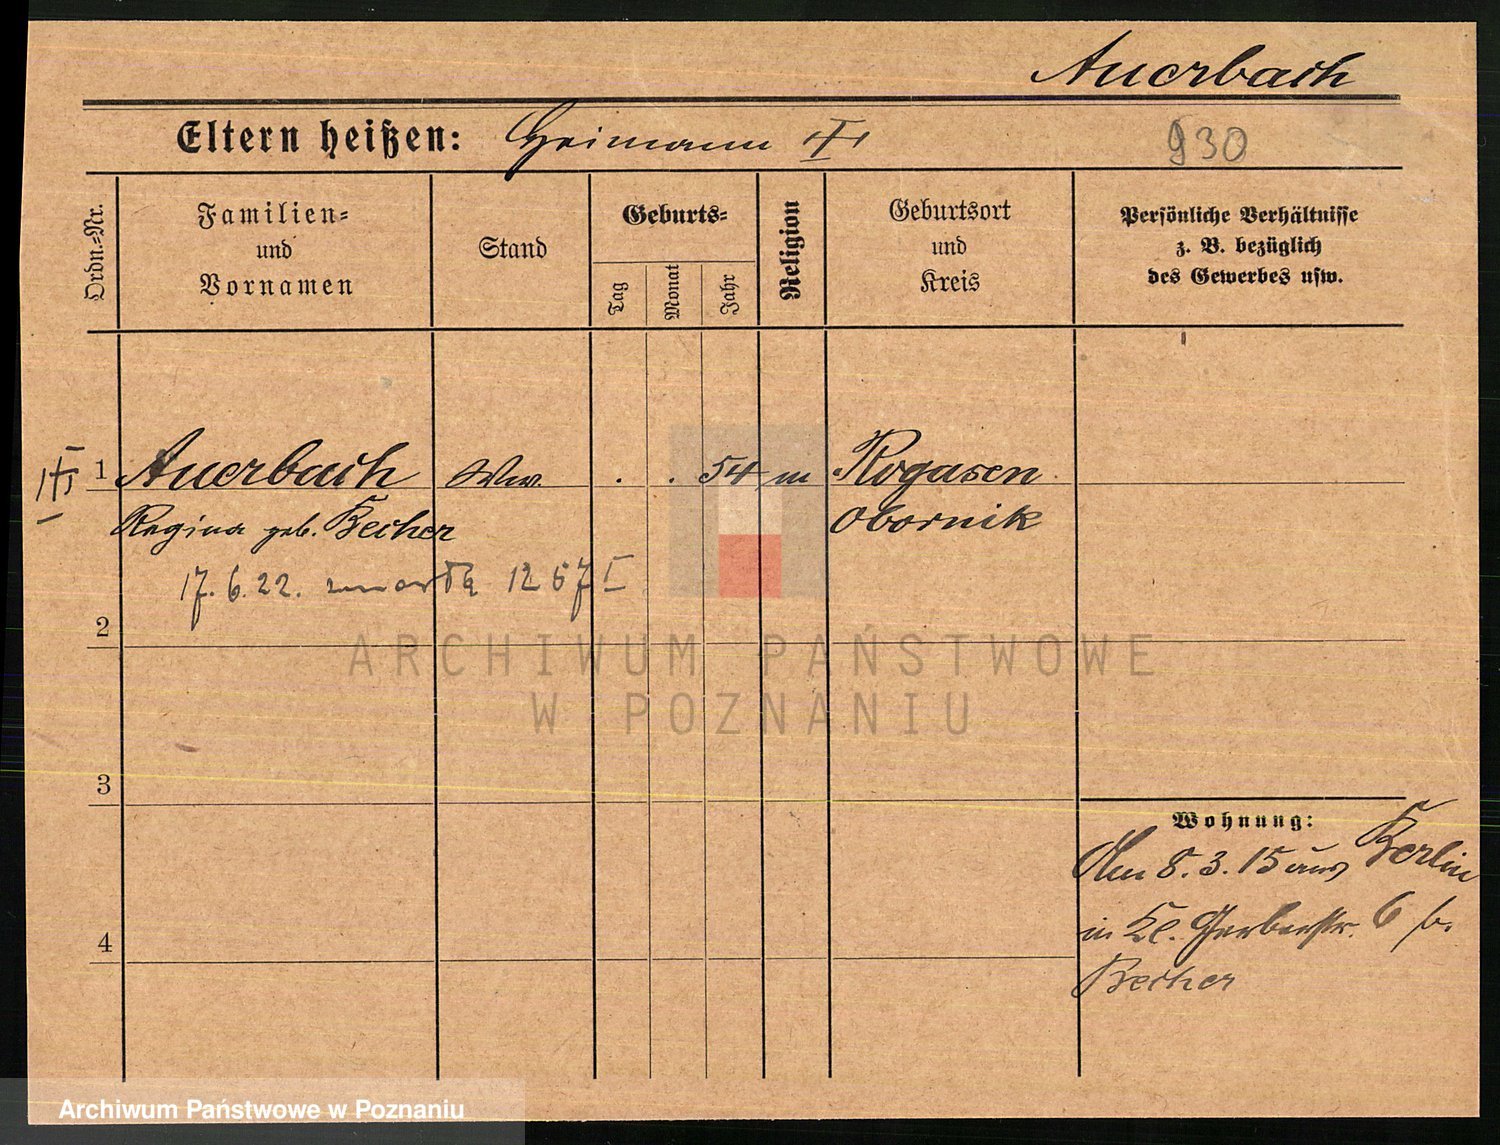 Auerbach
Eltern heißen: Heimann
930
Ordn.=Nr.
Familien=
und
Vornamen
Stand
Geburts=
Tag
Monat
Jahr
Religion
Geburtsort
und
Kreis
Persönliche Verhältnisse
z. B. bezüglich
des Gewerbes usw.
1 Auerbach Ww. . . 54 m Rogasen
Regina geb. Becher Obornik
17.6.22. zmarła 1267 I
2
ARCHIWUM PAŃSTWOWE
W POZNANIU
3
Wohnung:
Am 8.3.15 aus Berlin
in Kl. Gerberstr. 6 b.
Becher
4
Archiwum Państwowe w Poznaniu